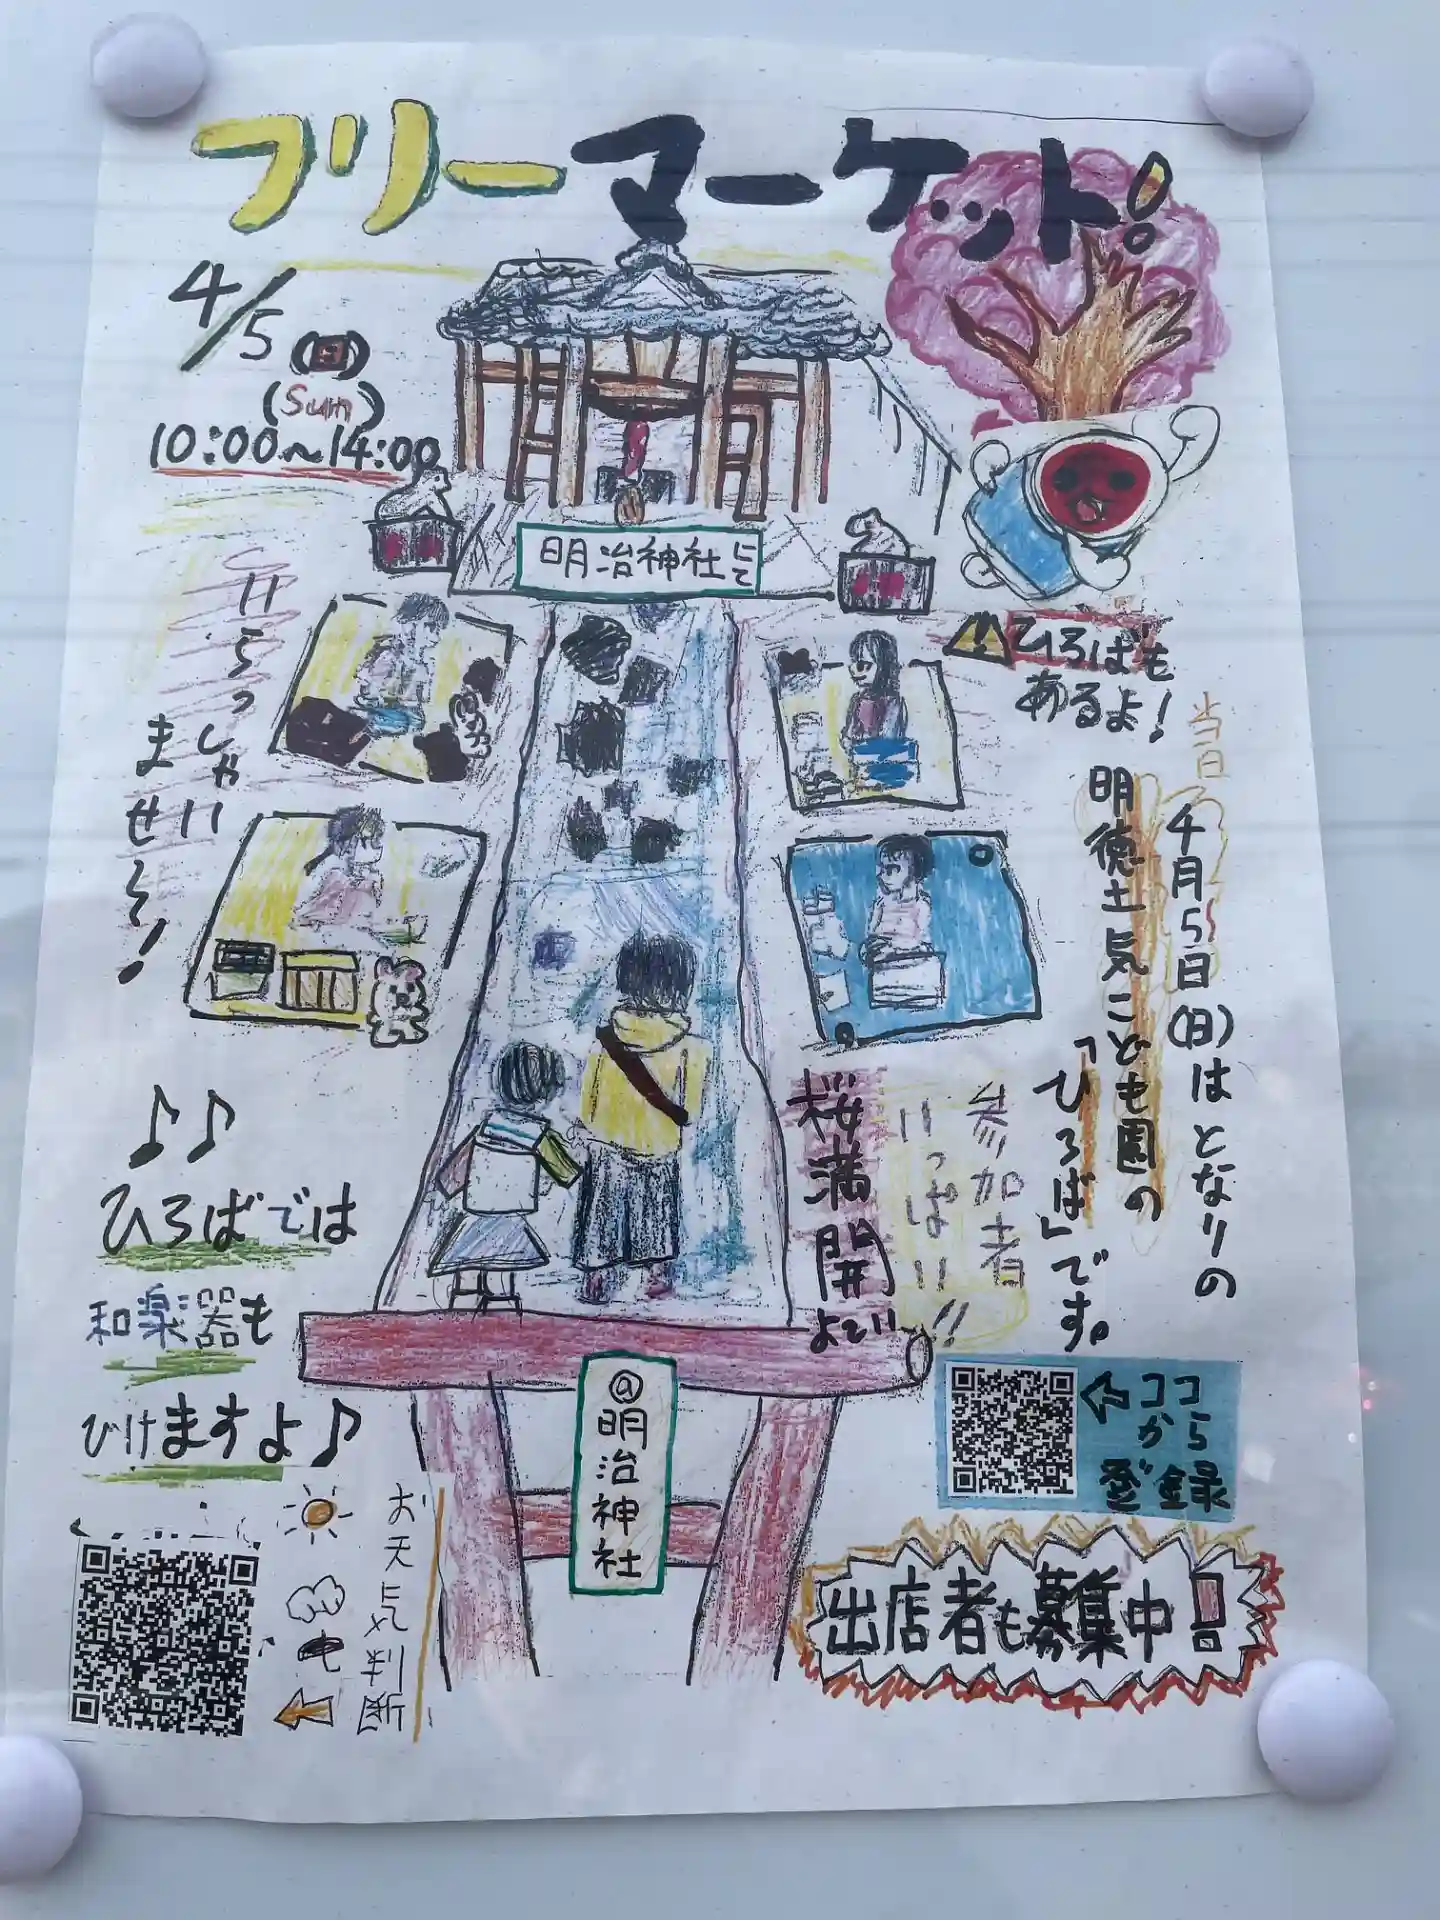 フリーマーケット!
4/5(日)
(Sum)
10:00〜14:00
明治神社にて
いらっしゃい
ませ〜!
⚠ひろばも
あるよ!
当日
4月5日(日)はとなりの
明徳土気こども園の
「ひろば」です。
参加者
いっぱい!!
桜満開
よてい
♪♪
ひろばでは
和楽器も
びけますよ♪
@明治神社
⇦ココ
から
登録
お天気判断
出店者も募集中!